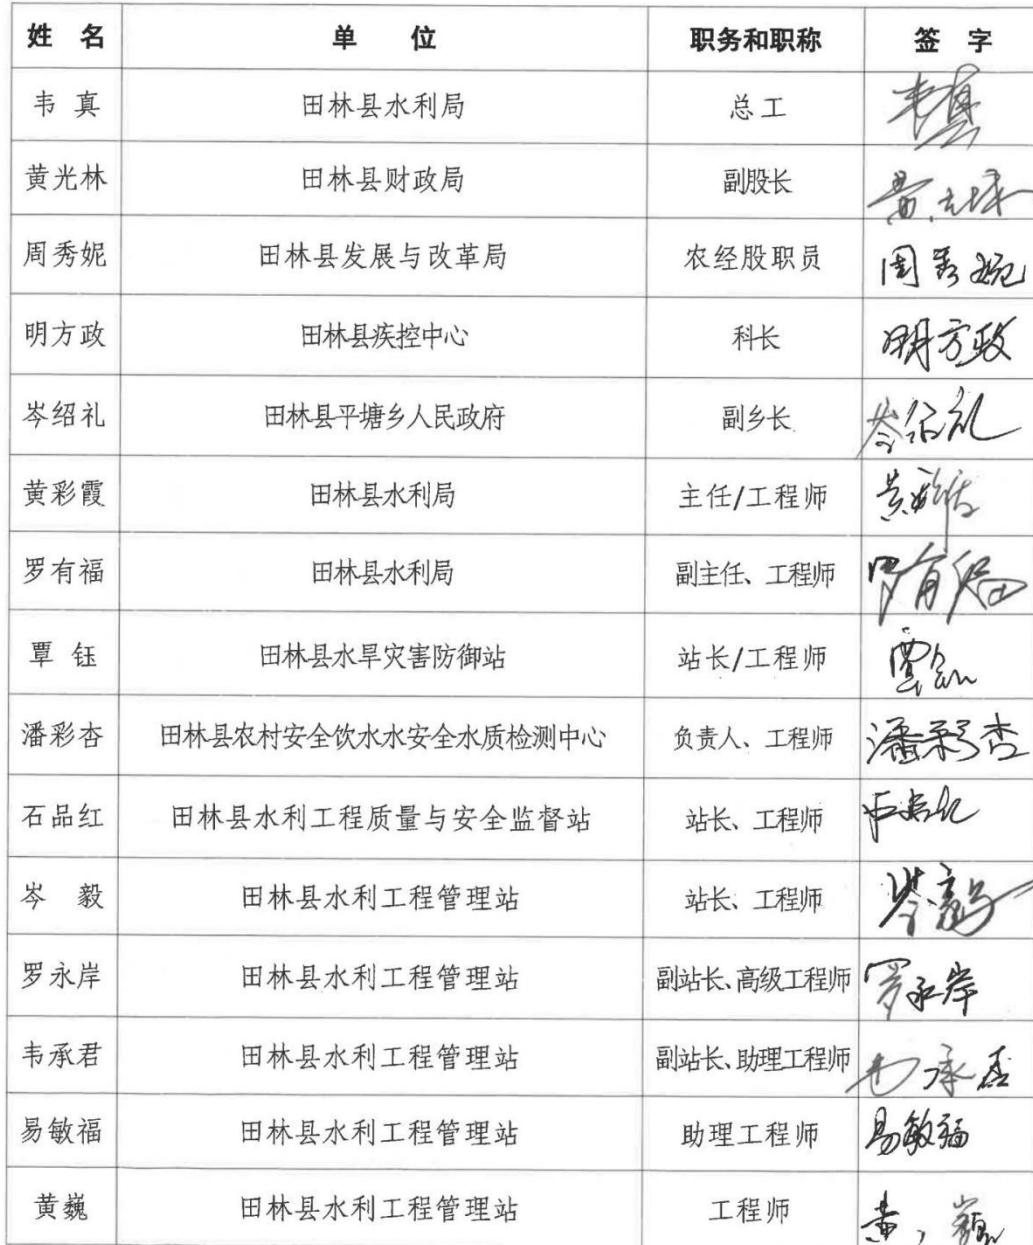 姓 名 单 位 职务和职称 签 字
韦 真 田林县水利局 总工 韦真
黄光林 田林县财政局 副股长
周秀妮 田林县发展与改革局 农经股职员 周秀妮
明方政 田林县疾控中心 科长 明方政
岑绍礼 田林县平塘乡人民政府 副乡长 岑绍礼
黄彩霞 田林县水利局 主任/工程师
罗有福 田林县水利局 副主任、工程师 罗有福
覃 钰 田林县水旱灾害防御站 站长/工程师 覃钰
潘彩杏 田林县农村安全饮水水安全水质检测中心 负责人、工程师 潘彩杏
石品红 田林县水利工程质量与安全监督站 站长、工程师 石品红
岑 毅 田林县水利工程管理站 站长、工程师 岑毅
罗永岸 田林县水利工程管理站 副站长、高级工程师 罗永岸
韦承君 田林县水利工程管理站 副站长、助理工程师 韦承君
易敏福 田林县水利工程管理站 助理工程师 易敏福
黄巍 田林县水利工程管理站 工程师 黄巍